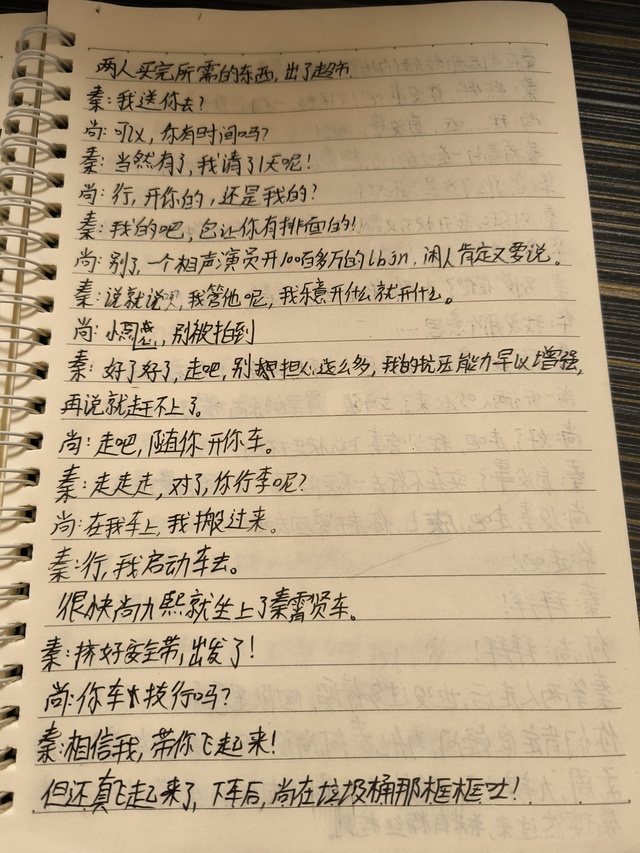 两人买完所需的东西,出了超市
秦:我送你去?
尚:可以,你有时间吗?
秦:当然有了,我请了1天呢!
尚:行,开你的,还是我的?
秦:我的吧,包让你有排面的!
尚:别了,一个相声演员开100百多万的lbjn,闲人肯定又要说。
秦:说就说呗,我管他呢,我乐意开什么就开什么。
尚:小周怹,别被拍到
秦:好了好了,走吧,别担心这么多,我的抗压能力早以增强,
再说就赶不上了。
尚:走吧,随你开你车。
秦:走走走,对了,你行李呢?
尚:在我车上,我搬过来。
秦:行,我启动车去。
很快尚九熙就坐上了秦霄贤车。
秦:挤好安全带,出发了!
尚:你车技行吗?
秦:相信我,带你飞起来!
但还真飞起来了,下车后,尚在垃圾桶那框框吐!